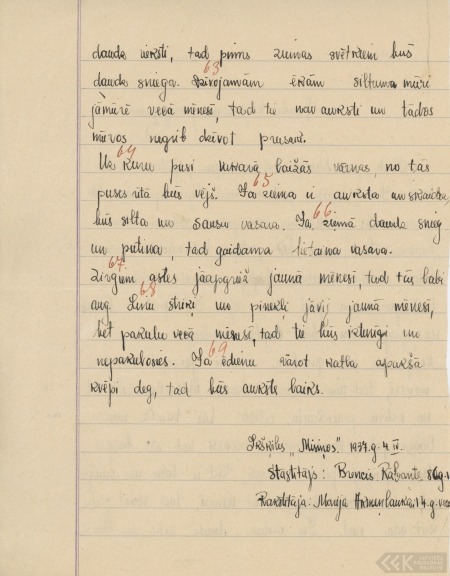 dauds vērsti, tad pirms ziemas svētkiem būs
63
dauds sniega. Dzīvojamām ēkām siltuma mūri
jāmūrē vecā mēnesī, tad tie nav auksti un tādos
mūros negrib dzīvot prusaki.
64
Uz kuru pusi vakarā laižās vārnas, no tās
65
puses rītā būs vējš. Ja ziema ir auksta un skaidra,
66.
būs silta un sausa vasara. Ja ziemā dauds snieg
un putina, tad gaidama lietaina vasara.
67.
Zirgiem astes jāapgriež jaunā mēnesī, tad tās labi
68
aug. Linu striķi un pinekļi jāvij jaunā mēnesī,
bet pakulu vecā mēnesī, tad tie būs izturīgi un
69
nepakulosies. Ja ēdienu vārot katla apakšā
kvēpi deg, tad būs auksts laiks.
Ikšķiles "Mūrnieki" 1937.g. 4. IV.
Stāstītājs: Brencis 86g.v
Rakstītāja: Marija 14.g.vec